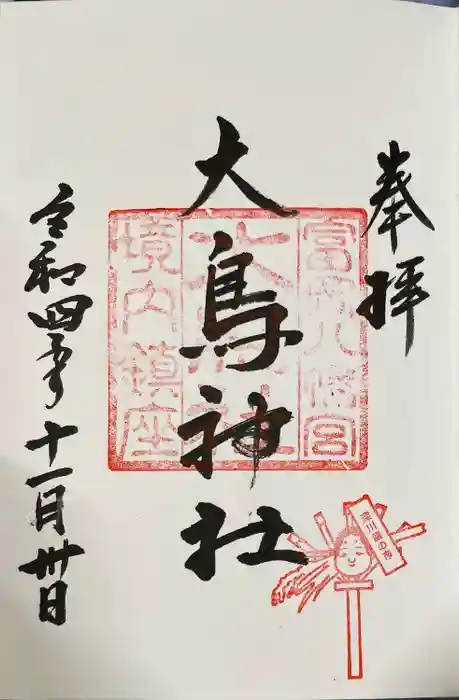 奉拝
富岡八幡宮
大鳥神社
境内鎮座
令和四年十一月卅日
深川酉の市